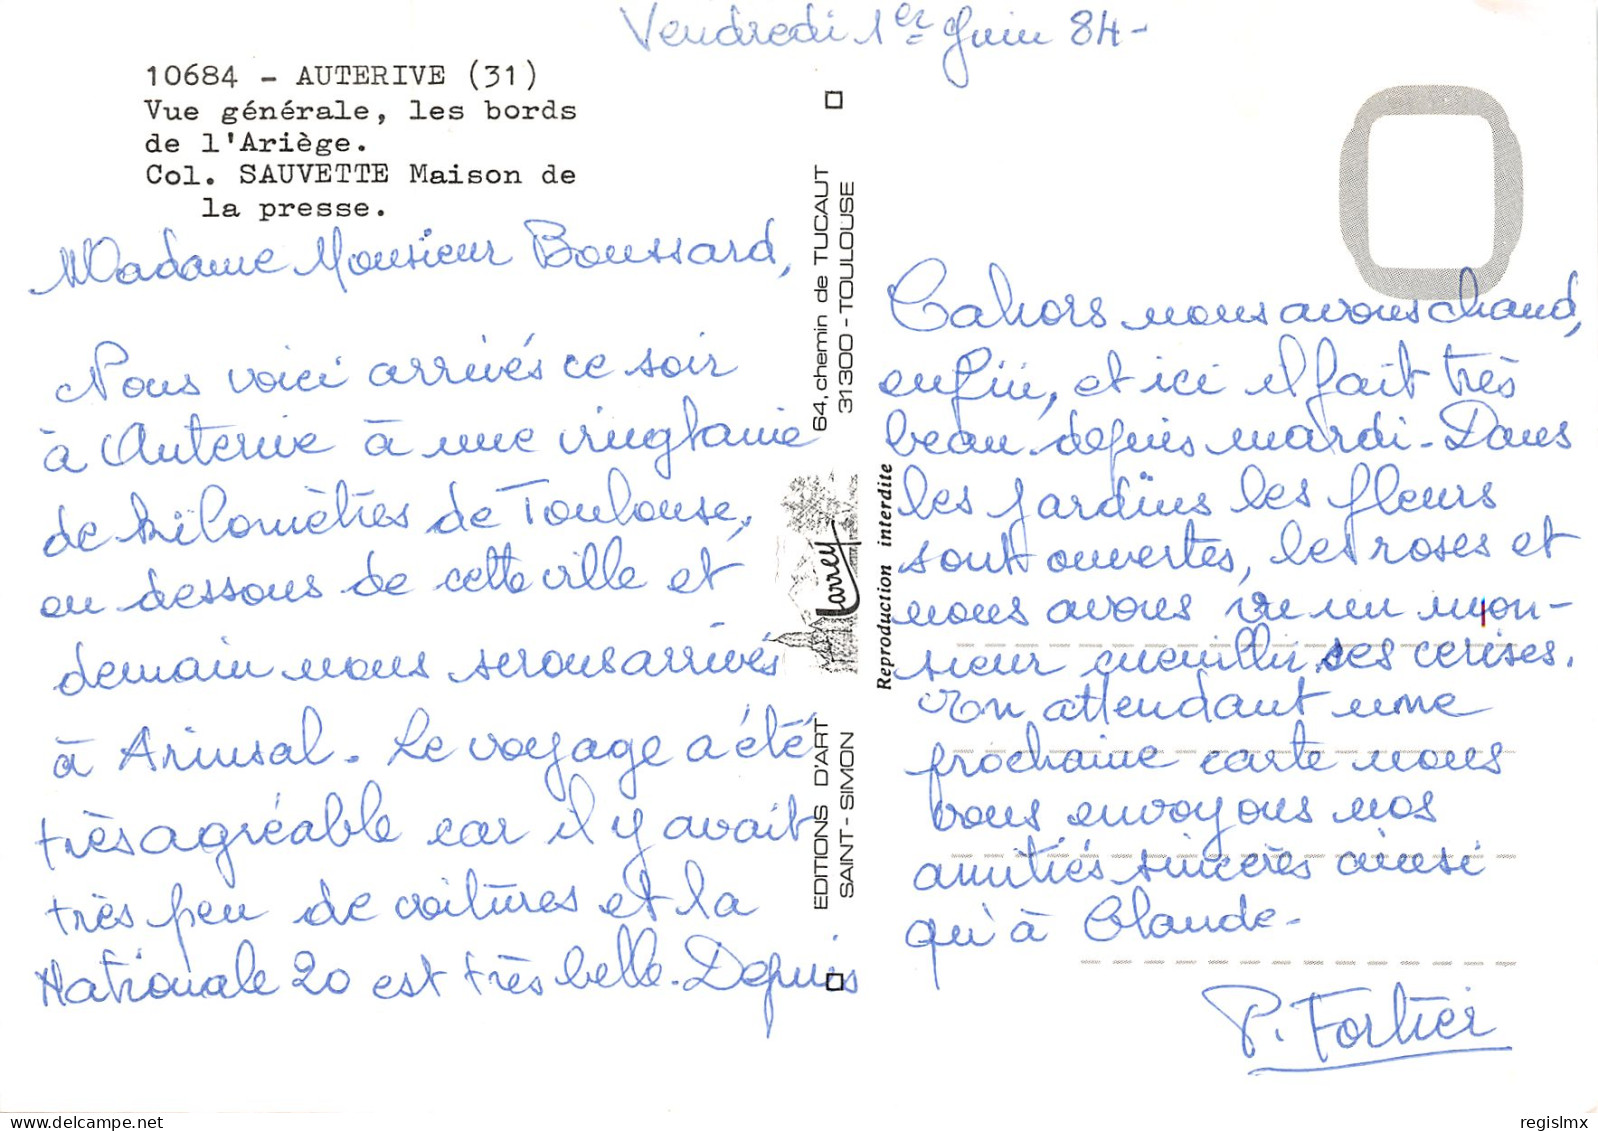 Vendredi 1er Juin 84-
10684 - AUTERIVE (31)
Vue générale, les bords
de l'Ariège.
Col. SAUVETTE Maison de
la presse.
Madame Monsieur Boussard,
Nous voici arrivés ce soir
à Auterive à une vingtaine
de kilomètres de Toulouse,
en dessous de cette ville et
demain nous serons arrivés
à Arinsal. Le voyage a été
très agréable car il y avait
très peu de voitures et la
Nationale 20 est très belle. Depuis
64, chemin de TUCAUT
31300 - TOULOUSE
Larrey
EDITIONS D'ART
SAINT-SIMON
Reproduction interdite
Cahors nous avons chaud,
enfin, et ici il fait très
beau depuis mardi - Dans
les jardins les fleurs
sont ouvertes, les roses et
nous avons vu un mon-
sieur cueillir ses cerises.
En attendant une
prochaine carte nous
vous envoyons nos
amitiés sincères ainsi
qu'à Claude-
P. Fortier
regislmx